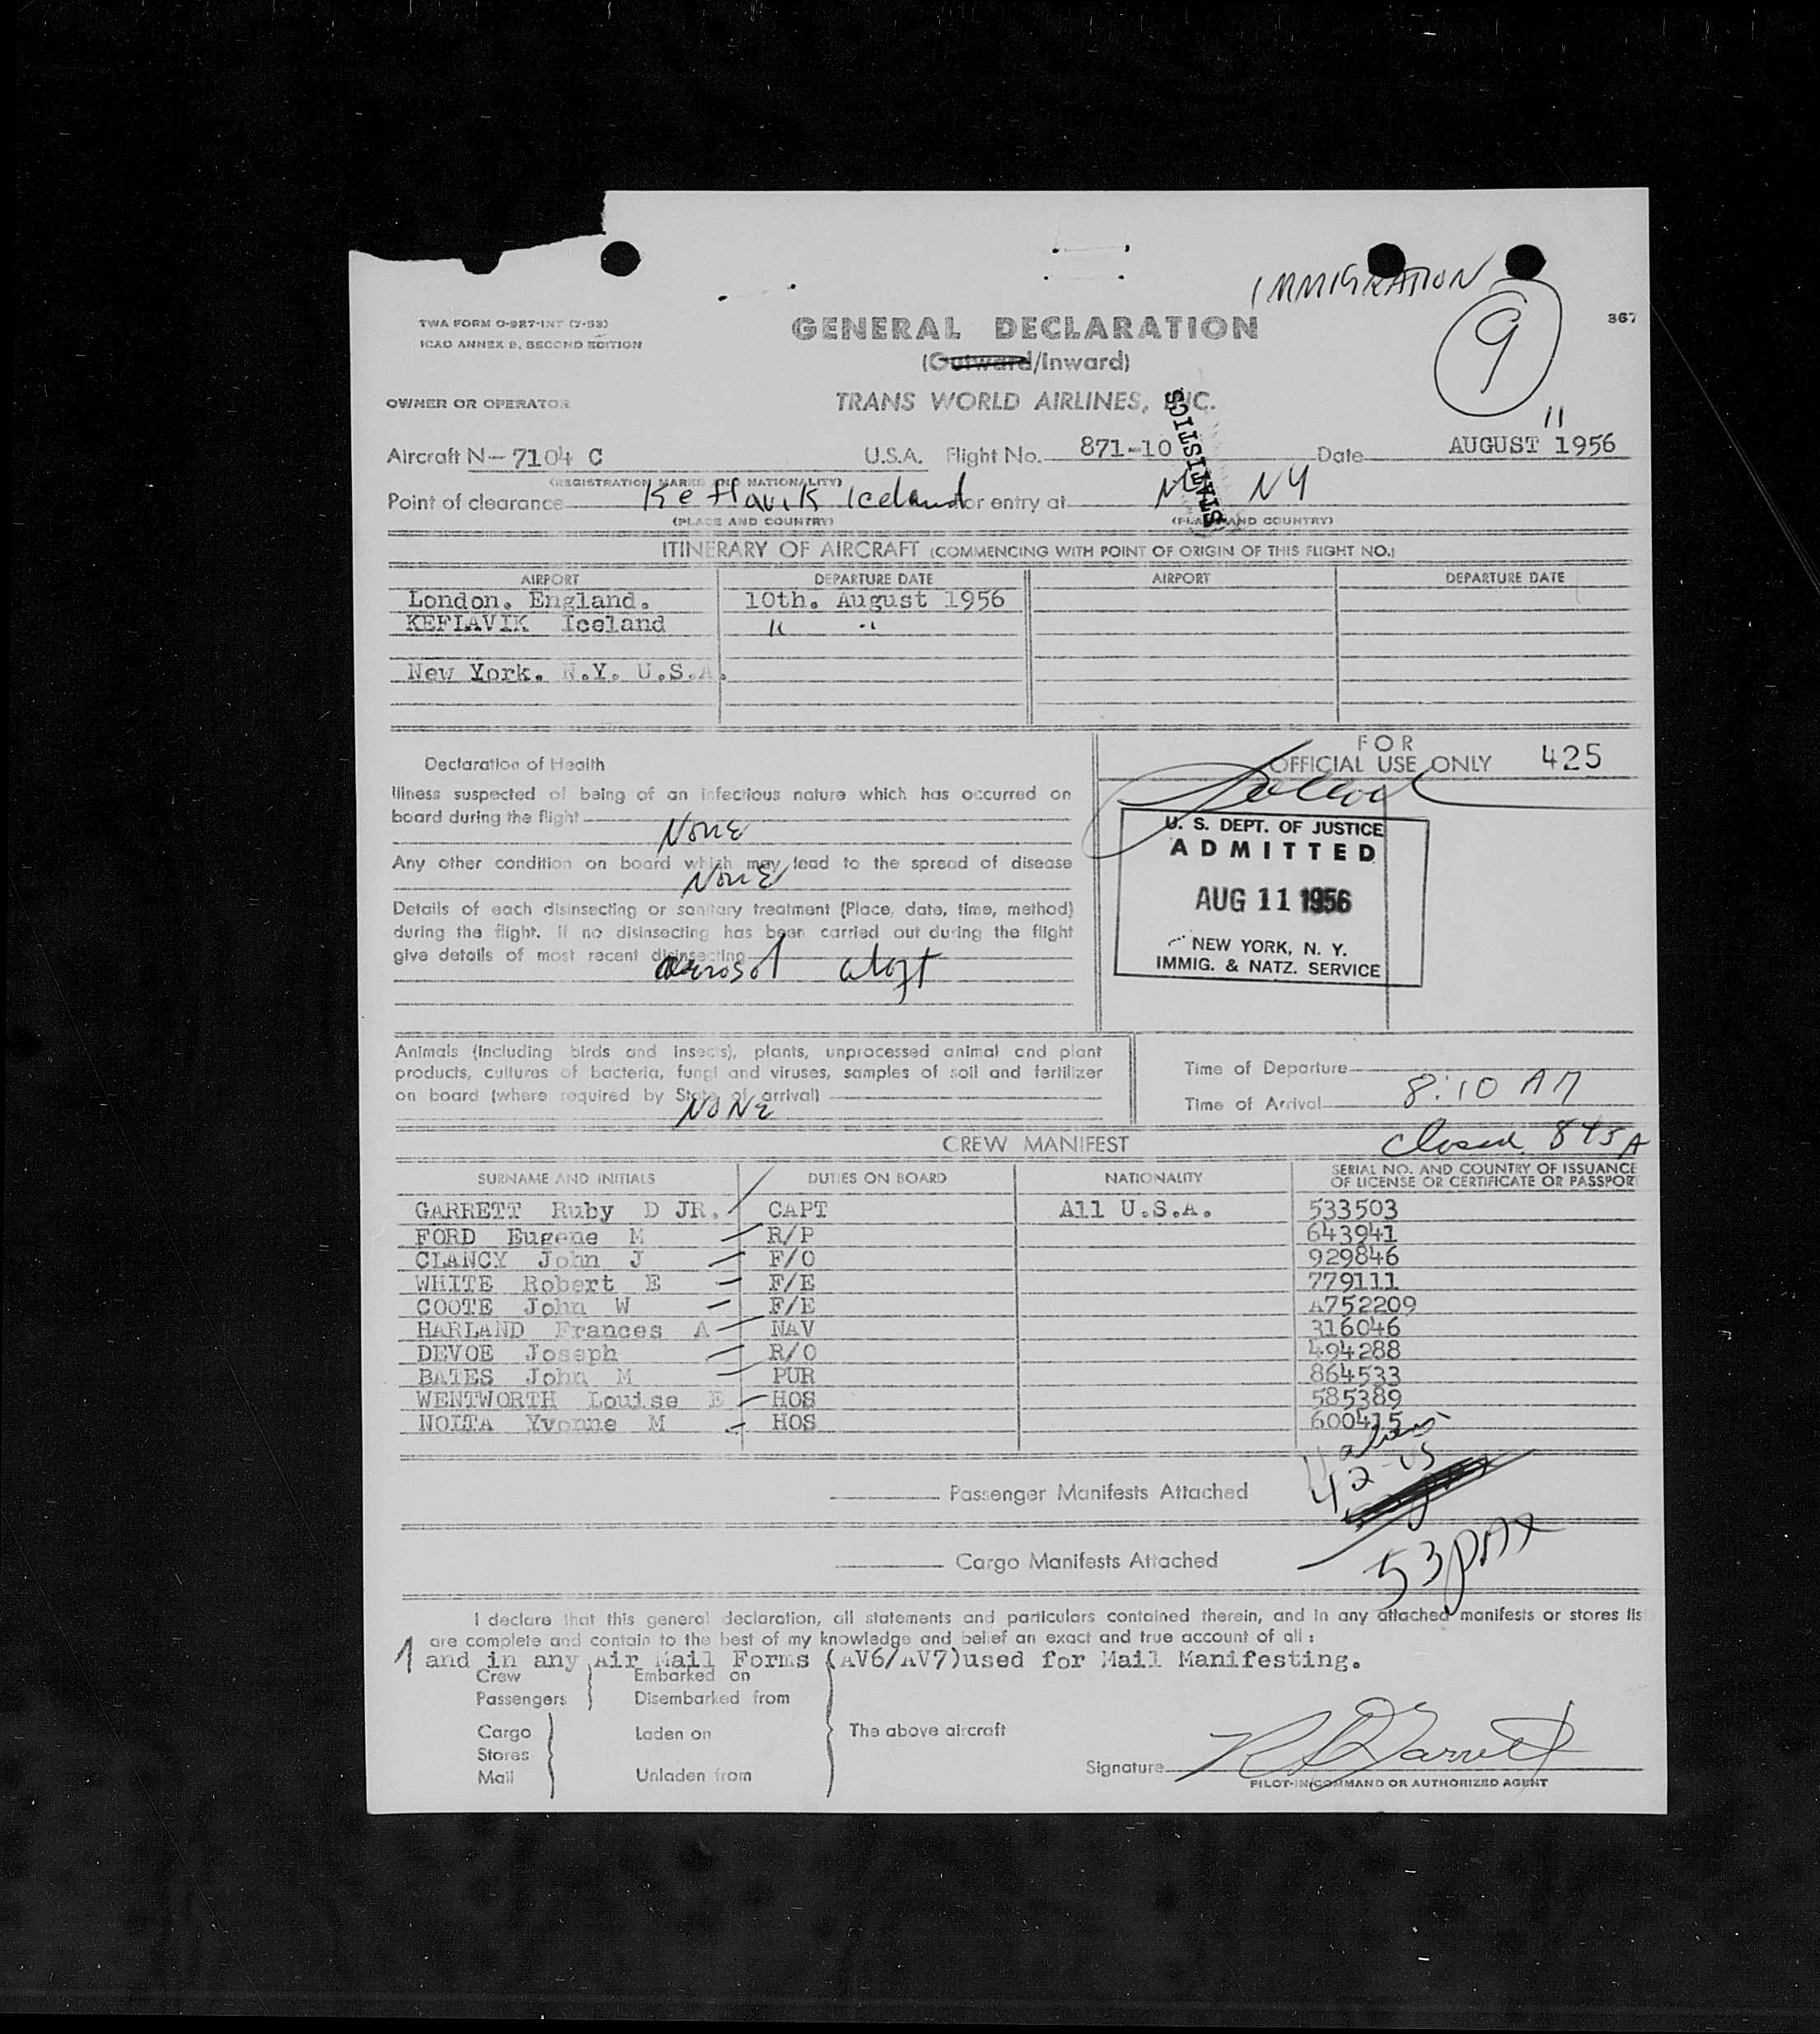 IMMIGRATION
TWA FORM O-987-INT (7-53)
ICAO ANNEX 9, SECOND EDITION
GENERAL DECLARATION
9
367
(Outward/Inward)
OWNER OR OPERATOR
TRANS WORLD AIRLINES, INC.
STATISTICS
11
Aircraft N-7104 C U.S.A. Flight No. 871-10 Date AUGUST 1956
(REGISTRATION MARKS AND NATIONALITY)
Point of clearance Keflavik Iceland For entry at NY NY
(PLACE AND COUNTRY) (PLACE AND COUNTRY)
ITINERARY OF AIRCRAFT (COMMENCING WITH POINT OF ORIGIN OF THIS FLIGHT NO.)
AIRPORT DEPARTURE DATE AIRPORT DEPARTURE DATE
London. England. 10th. August 1956
KEFLAVIK Iceland " "
New York. N.Y. U.S.A.
FOR
OFFICIAL USE ONLY 425
Declaration of Health
Illness suspected of being of an infectious nature which has occurred on
board during the flight None
Any other condition on board which may lead to the spread of disease
None
Details of each disinsecting or sanitary treatment (Place, date, time, method)
during the flight. If no disinsecting has been carried out during the flight
give details of most recent disinsecting
aerosol aloft
U. S. DEPT. OF JUSTICE
ADMITTED
AUG 11 1956
NEW YORK, N. Y.
IMMIG. & NATZ. SERVICE
Animals (including birds and insects), plants, unprocessed animal and plant
products, cultures of bacteria, fungi and viruses, samples of soil and fertilizer
on board (where required by State of arrival)
NONE
Time of Departure
Time of Arrival 8:10 AM
Closed 845 A
CREW MANIFEST
SURNAME AND INITIALS DUTIES ON BOARD NATIONALITY SERIAL NO. AND COUNTRY OF ISSUANCE
OF LICENSE OR CERTIFICATE OR PASSPOR
GARRETT Ruby D JR. CAPT All U.S.A. 533503
FORD Eugene M R/P 643941
CLANCY John J F/O 929846
WHITE Robert E F/E 779111
COOTE John W F/E A752209
HARLAND Frances A NAV 316046
DEVOE Joseph R/O 494288
BATES John M PUR 864533
WENTWORTH Louise E HOS 585389
NOLTA Yvonne M HOS 600415
11 aliens
42 US
Passenger Manifests Attached
53 pax
Cargo Manifests Attached
I declare that this general declaration, all statements and particulars contained therein, and in any attached manifests or stores lis
are complete and contain to the best of my knowledge and belief an exact and true account of all :
and in any Air Mail Forms (AV6/AV7)used for Mail Manifesting.
Crew Embarked on
Passengers Disembarked from
Cargo Laden on The above aircraft
Stores
Mail Unladen from
Signature R D Garrett
PILOT-IN-COMMAND OR AUTHORIZED AGENT